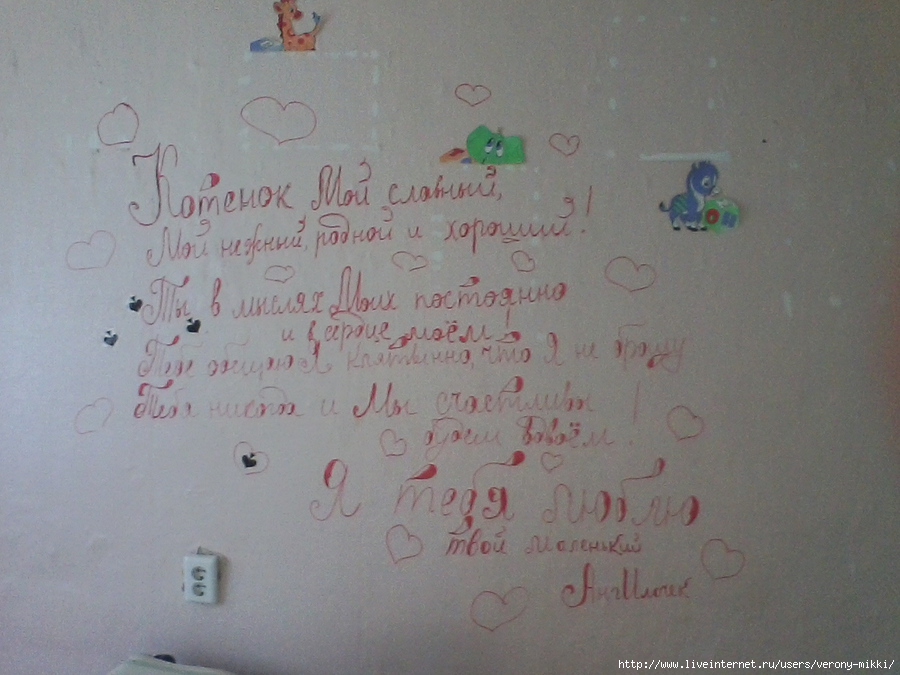 Котенок Мой славный,
Мой нежный, родной и хороший!
Ты в мыслях Моих постоянно
и в сердце моём!
Тебе обещаю Я клятвенно, что Я не брошу
Тебя никогда и Мы счастливы !
будем вдвоём!
Я тебя люблю
твой маленький
АнгИлочек
http://www.liveinternet.ru/users/verony-mikki/